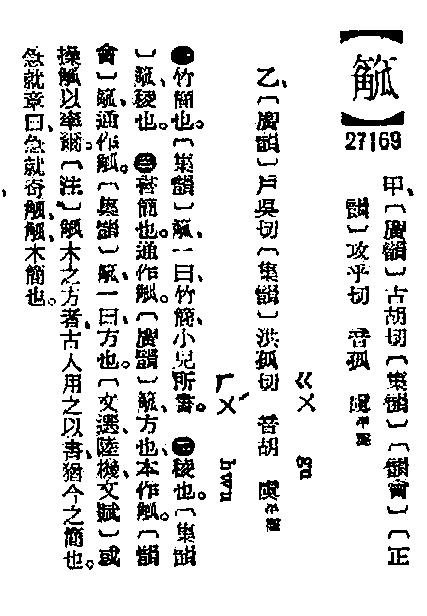 【䉉】
27169
甲、〔廣韻〕古胡切〔集韻〕〔韻會〕〔正
韻〕攻乎切 音孤 虞平聲
ㄍㄨ gu
乙、〔廣韻〕戶吳切〔集韻〕洪孤切 音胡 虞平聲
ㄏㄨˊ hwu
㊀竹簡也。〔集韻〕䉉、一曰、竹簡、小兒所書。㊁稜也。〔集韻
〕䉉、稜也。㊂書簡也。通作觚。〔廣韻〕䉉、方也、本作觚。〔韻
會〕䉉、通作觚。〔集韻〕䉉、一曰、方也。〔文選、陸機、文賦〕或
操觚以率爾。〔注〕觚、木之方者、古人用之以書、猶今之簡也。
急就章曰、急就奇觚、觚、木簡也。